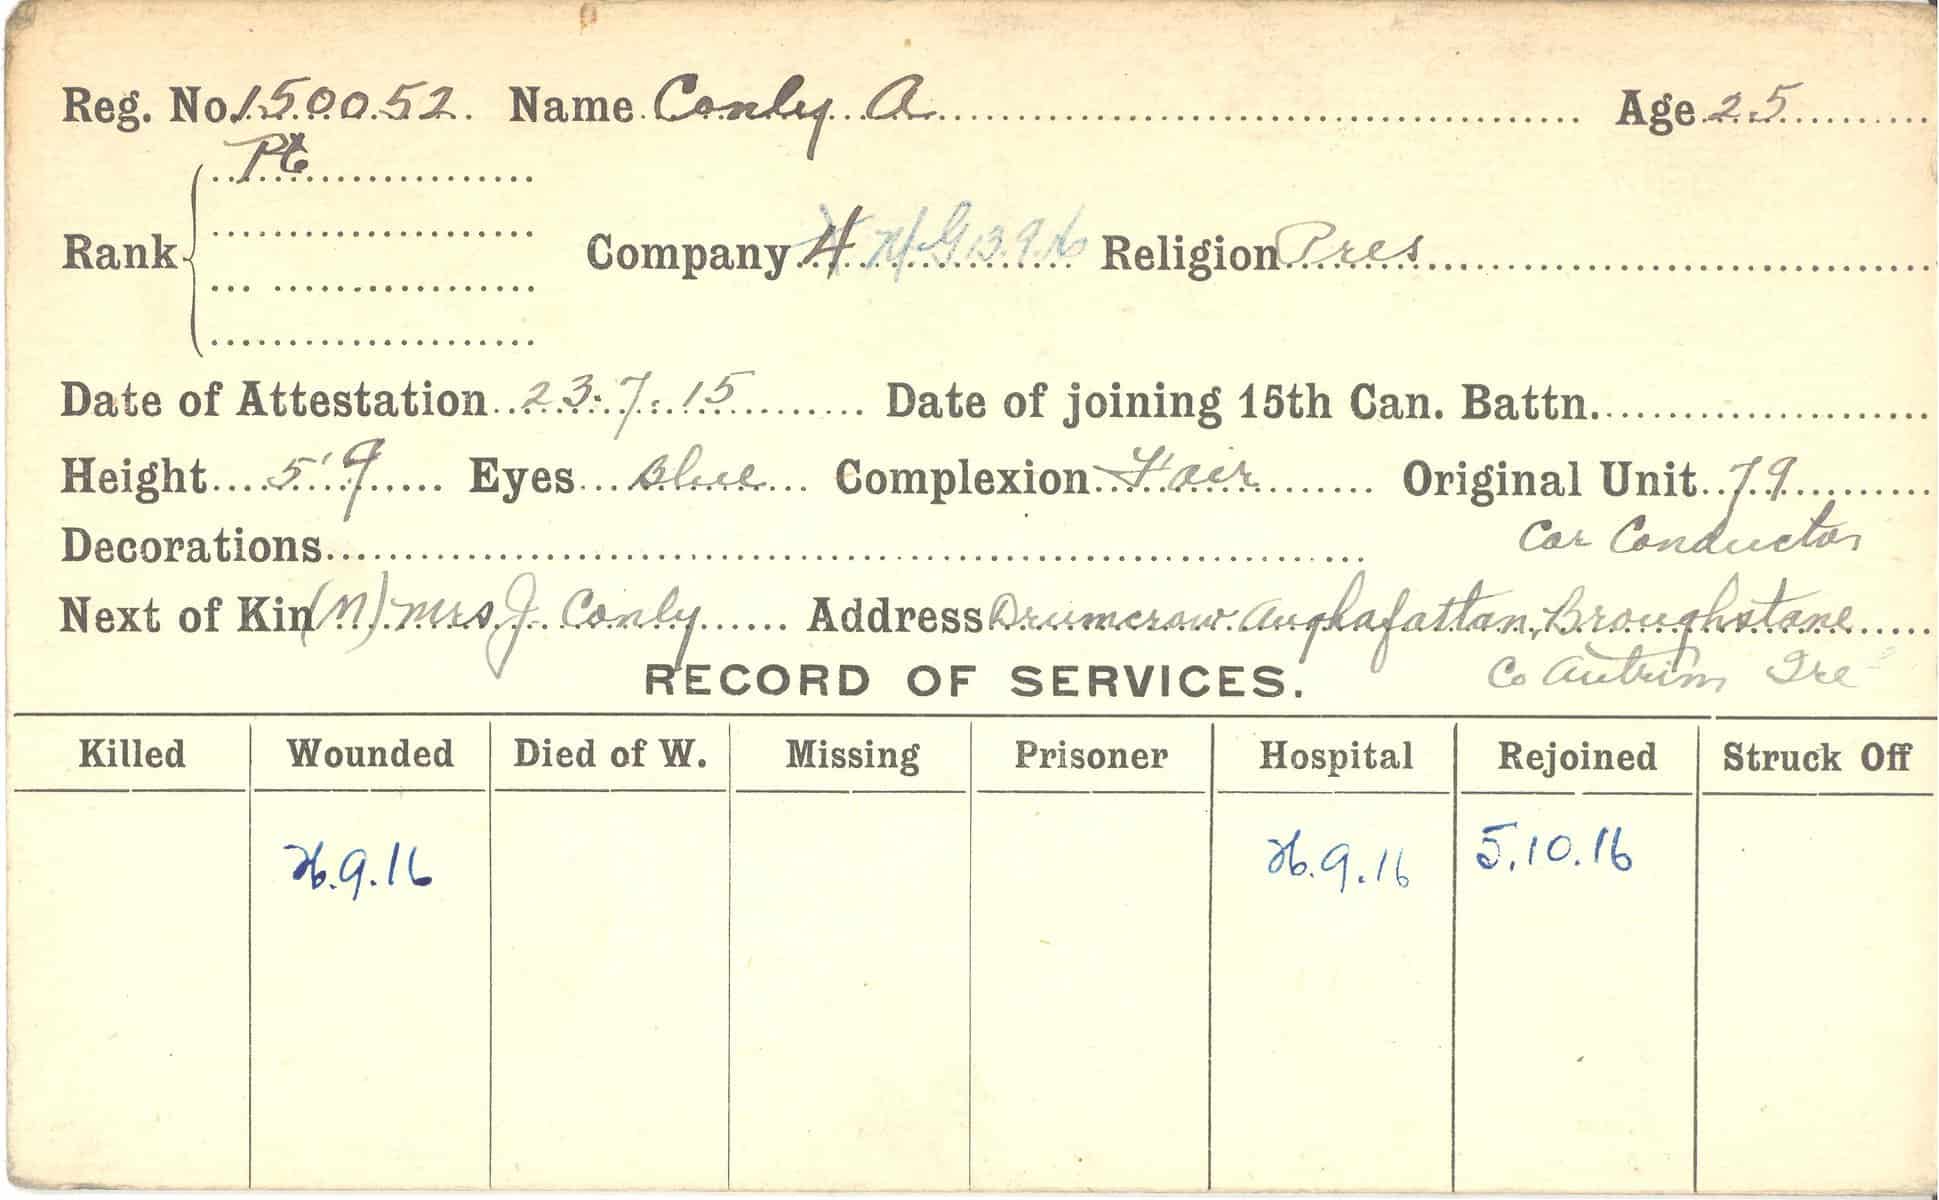 Reg. No. 150052. Name Conly A Age 25
Pte
Rank Company 4 M G 13.9.16 Religion Pres
Date of Attestation 23.7.15 Date of joining 15th Can. Battn.
Height 5'9 Eyes Blue Complexion Fair Original Unit 79
Decorations Car Conductor
Next of Kin (M) Mrs J. Conly Address Drumcraw Aughafattan, Broughstane
RECORD OF SERVICES. Co Antrim Ire
Killed Wounded Died of W. Missing Prisoner Hospital Rejoined Struck Off
26.9.16 26.9.16 5.10.16